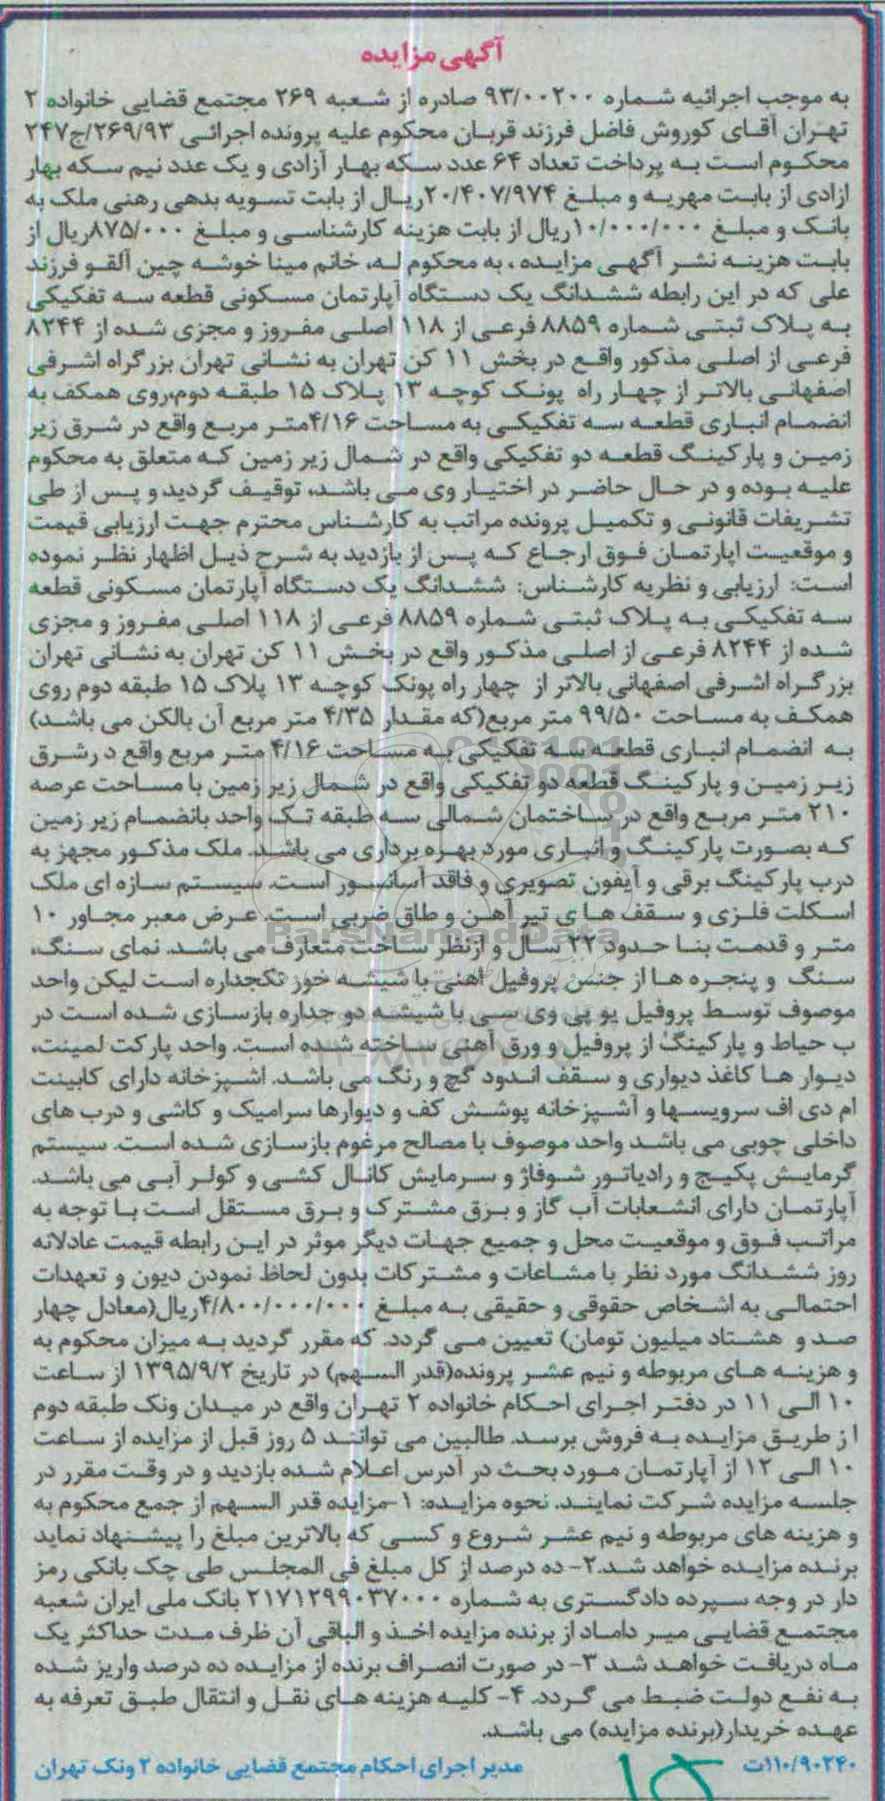 آگهی مزایده
به موجب اجرائیه شماره ۹۳/۰۰۲۰۰ صادره از شعبه ۲۶۹ مجتمع قضایی خانواده ۲
تهران آقای کوروش فاضل فرزند قربان محکوم علیه پرونده اجرائی ۲۶۹/۹۳/ج۲۴۷
محکوم است به پرداخت تعداد ۶۴ عدد سکه بهار آزادی و یک عدد نیم سکه بهار
ازادی از بابت مهریه و مبلغ ۲۰/۴۰۷/۹۷۴ریال از بابت تسویه بدهی رهنی ملک به
بانک و مبلغ ۱۰/۰۰۰/۰۰۰ریال از بابت هزینه کارشناسی و مبلغ ۸۷۵/۰۰۰ریال از
بابت هزینه نشر آگهی مزایده ، به محکوم له، خانم مینا خوشه چین آلقو فرزند
علی که در این رابطه ششدانگ یک دستگاه آپارتمان مسکونی قطعه سه تفکیکی
به پلاک ثبتی شماره ۸۸۵۹ فرعی از ۱۱۸ اصلی مفروز و مجزی شده از ۸۲۴۴
فرعی از اصلی مذکور واقع در بخش ۱۱ کن تهران به نشانی تهران بزرگراه اشرفی
اصفهانی بالاتر از چهار راه پونک کوچه ۱۳ پلاک ۱۵ طبقه دوم،روی همکف به
انضمام انباری قطعه سه تفکیکی به مساحت ۴/۱۶متر مربع واقع در شرق زیر
زمین و پارکینگ قطعه دو تفکیکی واقع در شمال زیر زمین که متعلق به محکوم
علیه بوده و در حال حاضر در اختیار وی می باشد، توقیف گردید و پس از طی
تشریفات قانونی و تکمیل پرونده مراتب به کارشناس محترم جهت ارزیابی قیمت
و موقعیت اپارتمان فوق ارجاع که پس از بازدید به شرح ذیل اظهار نظر نموده
است: ارزیابی و نظریه کارشناس: ششدانگ یک دستگاه آپارتمان مسکونی قطعه
سه تفکیکی به پلاک ثبتی شماره ۸۸۵۹ فرعی از ۱۱۸ اصلی مفروز و مجزی
شده از ۸۲۴۴ فرعی از اصلی مذکور واقع در بخش ۱۱ کن تهران به نشانی تهران
بزرگراه اشرفی اصفهانی بالاتر از چهار راه پونک کوچه ۱۳ پلاک ۱۵ طبقه دوم روی
همکف به مساحت ۹۹/۵۰ متر مربع(که مقدار ۴/۳۵ متر مربع آن بالکن می باشد)
به انضمام انباری قطعه سه تفکیکی به مساحت ۴/۱۶ متر مربع واقع د رشرق
زیر زمین و پارکینگ قطعه دو تفکیکی واقع در شمال زیر زمین با مساحت عرصه
۲۱۰ متر مربع واقع در ساختمان شمالی سه طبقه تک واحد بانضمام زیر زمین
که بصورت پارکینگ و انباری مورد بهره برداری می باشد. ملک مذکور مجهز به
درب پارکینگ برقی و آیفون تصویری و فاقد آسانسور است. سیستم سازه ای ملک
اسکلت فلزی و سقف ها ی تیر آهن و طاق ضربی است. عرض معبر مجاور ۱۰
متر و قدمت بنا حدود ۲۲ سال و ازنظر ساخت متعارف می باشد. نمای سنگ،
سنگ و پنجره ها از جنس پروفیل آهنی با شیشه خور تکجداره است لیکن واحد
موصوف توسط پروفیل یو پی وی سی با شیشه دو جداره بازسازی شده است در
ب حیاط و پارکینگ از پروفیل و ورق آهنی ساخته شده است. واحد پارکت لمینت،
دیوار ها کاغذ دیواری و سقف اندود گچ و رنگ می باشد. اشپزخانه دارای کابینت
ام دی اف سرویسها و آشپزخانه پوشش کف و دیوارها سرامیک و کاشی و درب های
داخلی چوبی می باشد واحد موصوف با مصالح مرغوم بازسازی شده است. سیستم
گرمایش پکیج و رادیاتور شوفاژ و سرمایش کانال کشی و کولر آبی می باشد.
آپارتمان دارای انشعابات آب گاز و برق مشترک و برق مستقل است با توجه به
مراتب فوق و موقعیت محل و جمیع جهات دیگر موثر در این رابطه قیمت عادلانه
روز ششدانگ مورد نظر با مشاعات و مشترکات بدون لحاظ نمودن دیون و تعهدات
احتمالی به اشخاص حقوقی و حقیقی به مبلغ ۴/۸۰۰/۰۰۰/۰۰۰ریال(معادل چهار
صد و هشتاد میلیون تومان) تعیین می گردد. که مقرر گردید به میزان محکوم به
و هزینه های مربوطه و نیم عشر پرونده(قدر السهم) در تاریخ ۱۳۹۵/۹/۲ از ساعت
۱۰ الی ۱۱ در دفتر اجرای احکام خانواده ۲ تهران واقع در میدان ونک طبقه دوم
ا ز طریق مزایده به فروش برسد. طالبین می توانند ۵ روز قبل از مزایده از ساعت
۱۰ الی ۱۲ از آپارتمان مورد بحث در آدرس اعلام شده بازدید و در وقت مقرر در
جلسه مزایده شرکت نمایند. نحوه مزایده: ۱-مزایده قدر السهم از جمع محکوم به
و هزینه های مربوطه و نیم عشر شروع و کسی که بالاترین مبلغ را پیشنهاد نماید
برنده مزایده خواهد شد.۲- ده درصد از کل مبلغ فی المجلس طی چک بانکی رمز
دار در وجه سپرده دادگستری به شماره ۲۱۷۱۲۹۹۰۳۷۰۰۰ بانک ملی ایران شعبه
مجتمع قضایی میر داماد از برنده مزایده اخذ و الباقی آن ظرف مدت حداکثر یک
ماه دریافت خواهد شد ۳- در صورت انصراف برنده از مزایده ده درصد واریز شده
به نفع دولت ضبط می گردد. ۴- کلیه هزینه های نقل و انتقال طبق تعرفه به
عهده خریدار(برنده مزایده) می باشد.
۱۱۰/۹۰۲۴۰ت مدیر اجرای احکام مجتمع قضایی خانواده ۲ ونک تهران
ParsNamadData